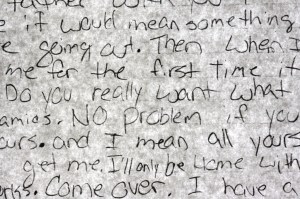 it would mean something
going out. Then when I
me for the first time it
Do you really want what
amics. NO problem if you
ours. and I mean all yours
get me. I'll only be Home with
rks. Come over. I have a